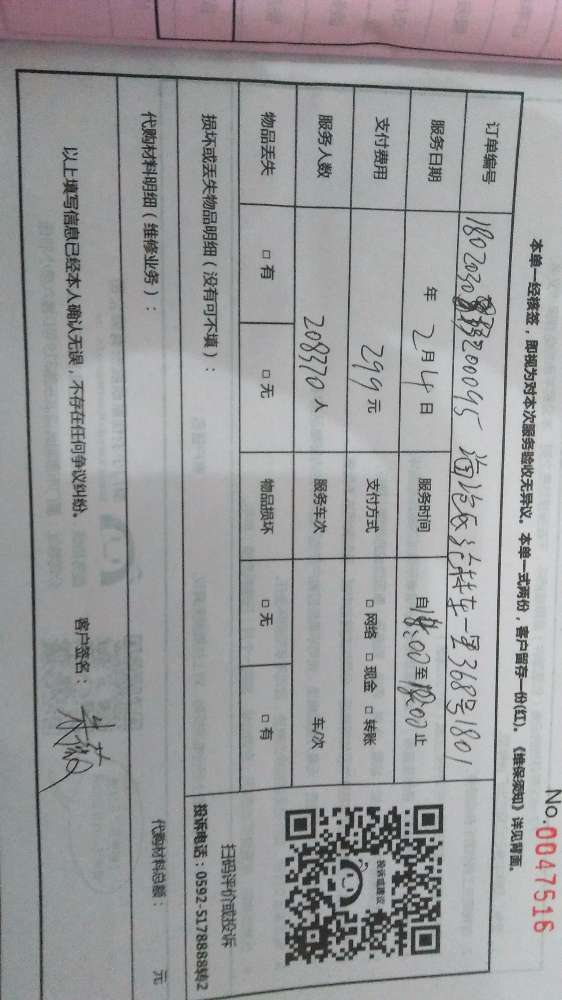 No.0047516
本单一经核签，即视为对本次服务验收无异议。本单一式两份，客户留存一份(红)。《维保须知》详见背面。
订单编号 1802030 200095 一里368号1801
服务日期 年 2月4日 服务时间 自 :00至18:00止
支付费用 299元 支付方式 □网络 □现金 □转账
服务人数 208370人 服务车次 车/次
物品丢失 □有 □无 物品损坏 □无 □有
投诉或建议
扫码评价或投诉
投诉电话：0592-5178888转2
损坏或丢失物品明细（没有可不填）：
代购材料明细（维修业务）：
代购材料总额： 元
以上填写信息已经本人确认无误，不存在任何争议纠纷。
客户签名：